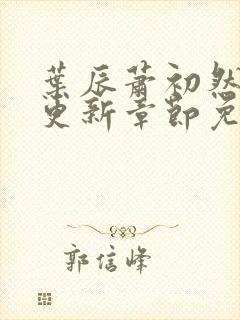 葉辰蕭初然
更新章節免
郭信峰